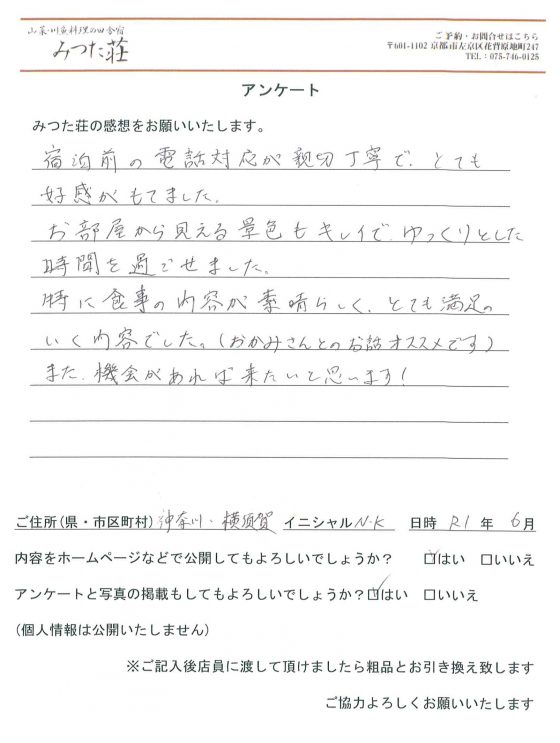 山菜・川魚料理の田舎宿
みつた荘
ご予約・お問合せはこちら
〒601-1102 京都市左京区花背原地町247
TEL：075-746-0125
アンケート
みつた荘の感想をお願いいたします。
宿泊前の電話対応が親切丁寧で、とても
好感がもてました。
お部屋から見える景色もキレイで、ゆっくりとした
時間を過ごせました。
特に食事の内容が素晴らしく、とても満足の
いく内容でした。（おかみさんとのお話オススメです）
また、機会があれば来たいと思います！
ご住所（県・市区町村）神奈川・横須賀 イニシャル N・K 日時 R1 年 6月
内容をホームページなどで公開してもよろしいでしょうか？ ☑はい □いいえ
アンケートと写真の掲載もしてもよろしいでしょうか？☑はい □いいえ
（個人情報は公開いたしません）
※ご記入後店員に渡して頂けましたら粗品とお引き換え致します
ご協力よろしくお願いいたします